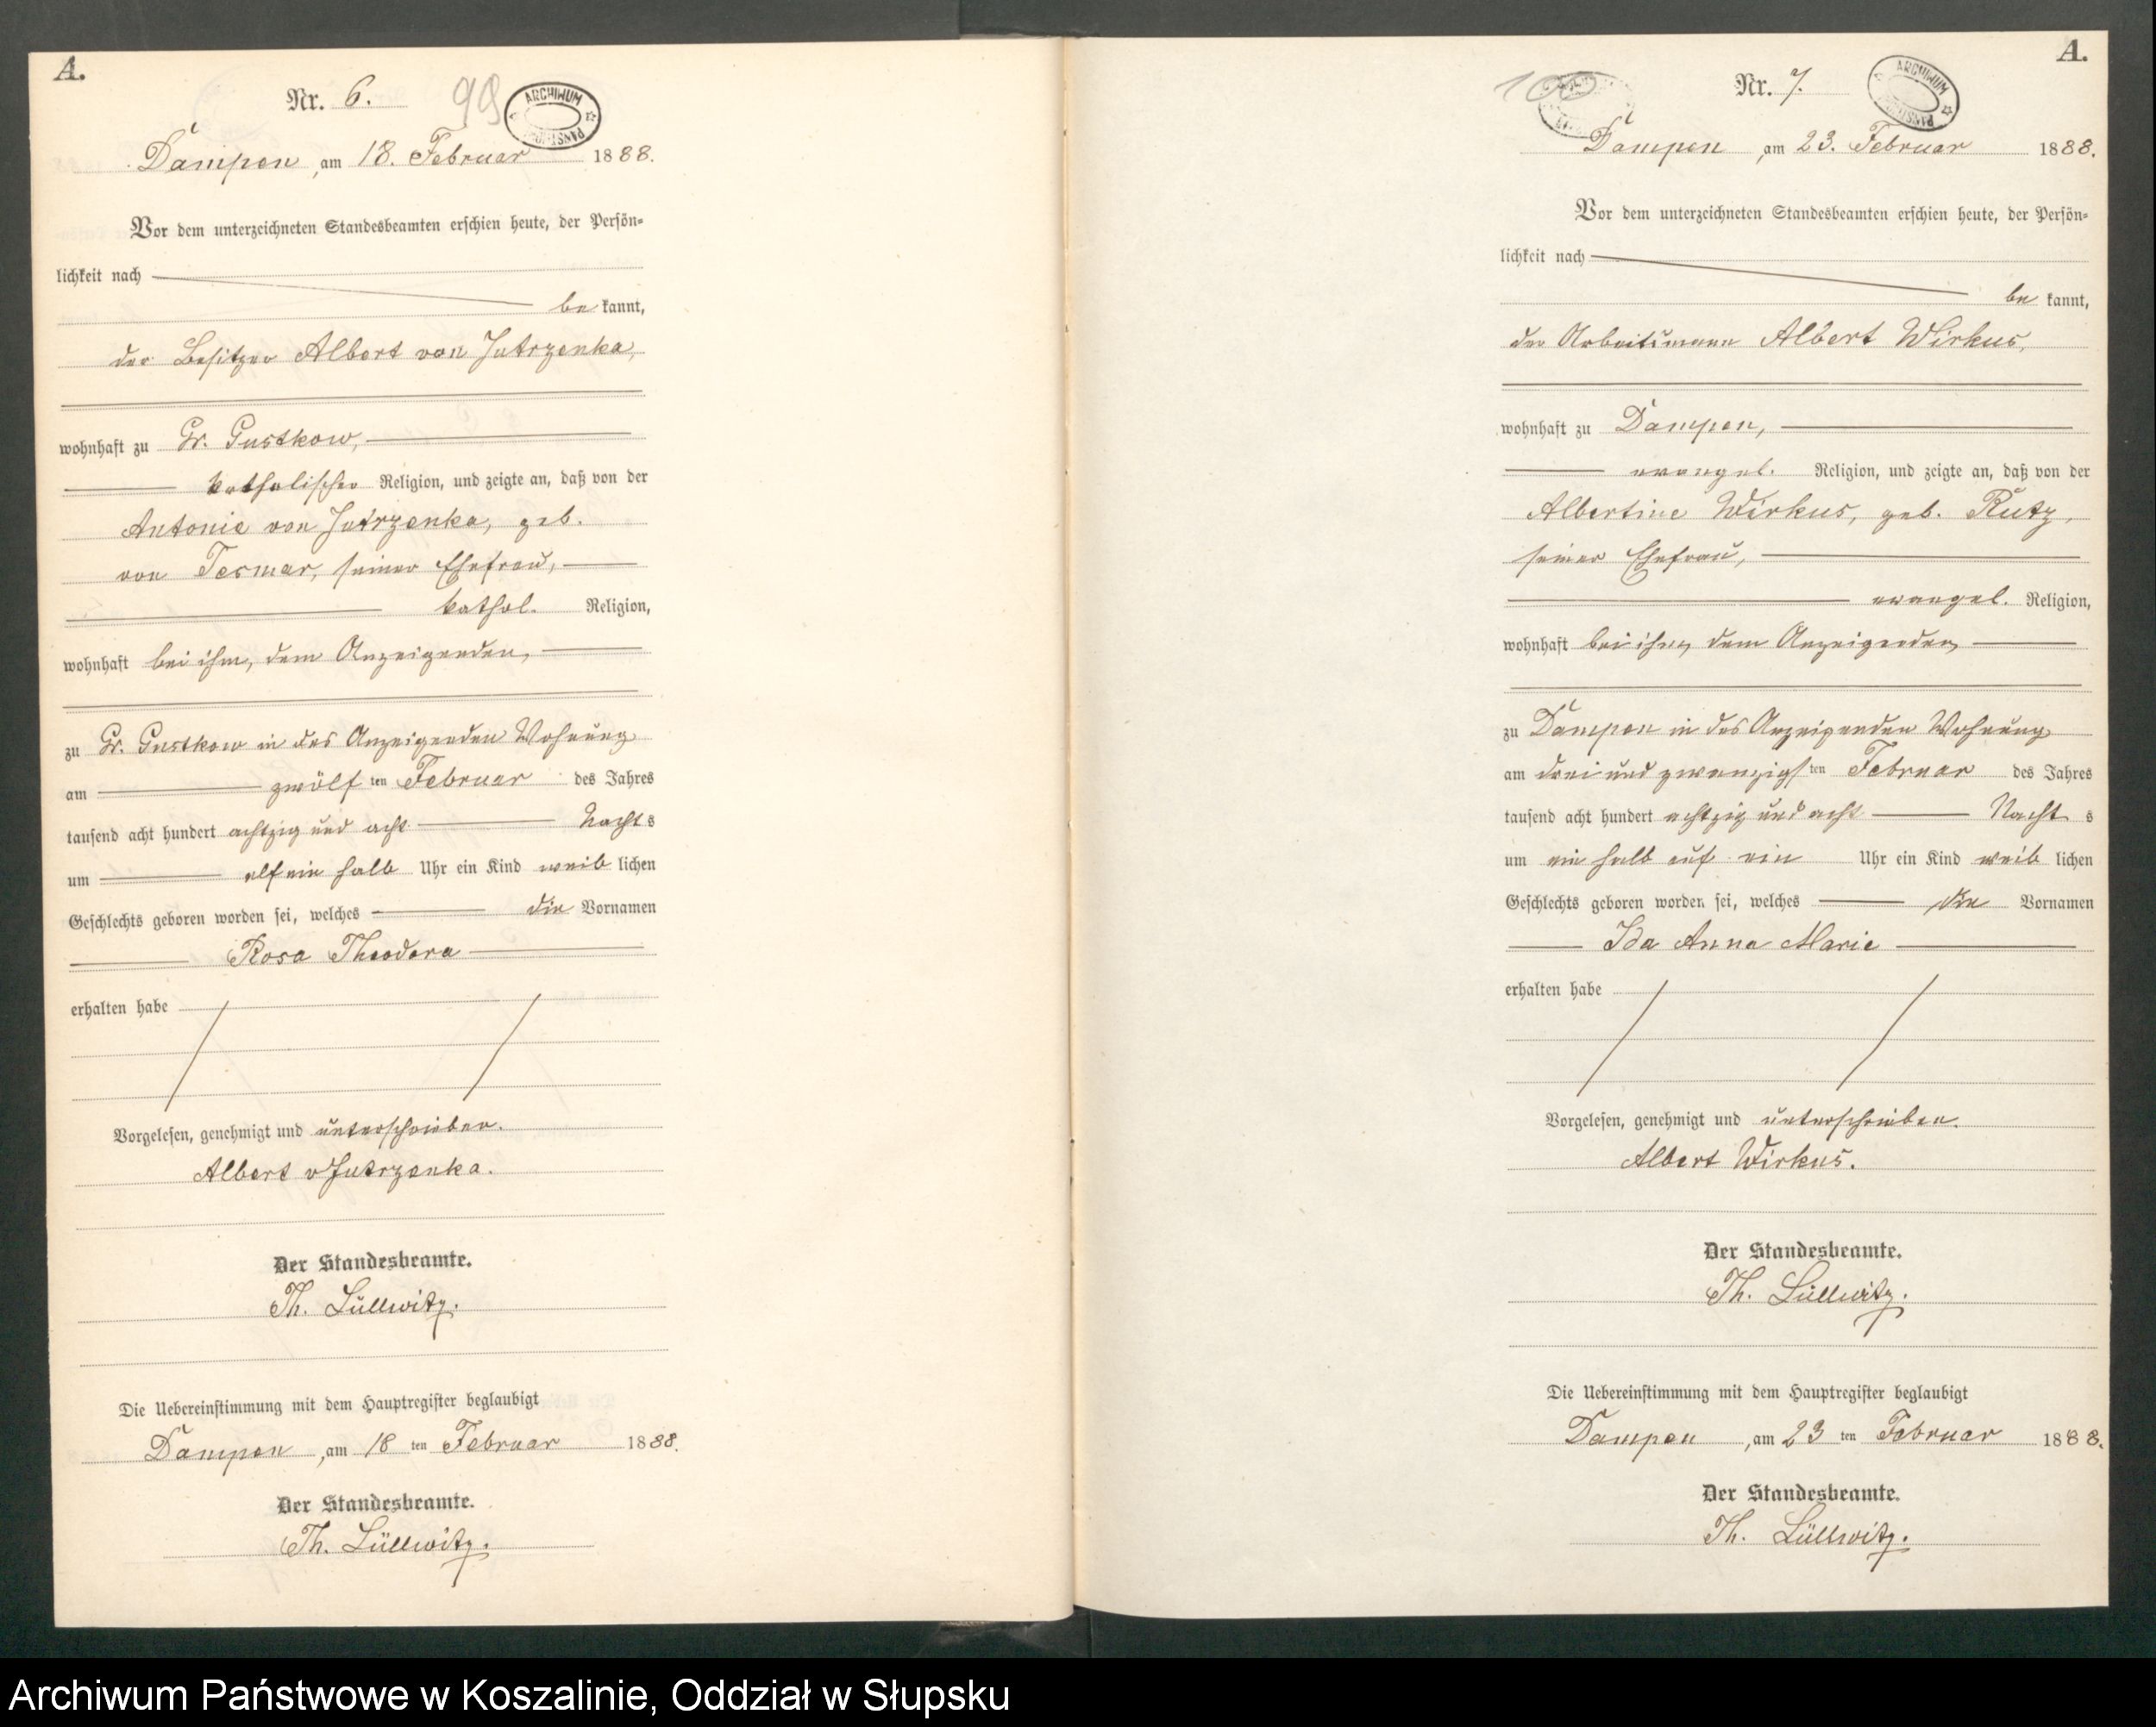 A.
Nr. 6.
99
ARCHIWUM PAŃSTWOWE
Dampen, am 18. Februar 1888.
Vor dem unterzeichneten Standesbeamten erschien heute, der Persön-
lichkeit nach
be kannt,
der Besitzer Albert von Jutrzenka,
wohnhaft zu Gr. Gustkow,
katholischer Religion, und zeigte an, daß von der
Antonie von Jutrzenka, geb.
von Tesmar, seiner Ehefrau,
kathol. Religion,
wohnhaft bei ihm, dem Anzeigenden,
zu Gr. Gustkow in des Anzeigenden Wohnung
am zwölf ten Februar des Jahres
tausend acht hundert achtzig und acht Nacht s
um elf ein halb Uhr ein Kind weib lichen
Geschlechts geboren worden sei, welches die Vornamen
Rosa Theodora
erhalten habe
Vorgelesen, genehmigt und unterschrieben.
Albert v Jutrzenka.
Der Standesbeamte.
Th. Lüllwitz.
Die Uebereinstimmung mit dem Hauptregister beglaubigt
Dampen, am 18 ten Februar 1888.
Der Standesbeamte.
Th. Lüllwitz.
A.
100
Nr. 7.
ARCHIWUM PAŃSTWOWE
Dampen, am 23. Februar 1888.
Vor dem unterzeichneten Standesbeamten erschien heute, der Persön-
lichkeit nach
be kannt,
der Arbeitsmann Albert Wirkus,
wohnhaft zu Dampen,
evangel. Religion, und zeigte an, daß von der
Albertine Wirkus, geb. Rutz,
seiner Ehefrau,
evangel. Religion,
wohnhaft bei ihm, dem Anzeigenden,
zu Dampen in des Anzeigenden Wohnung
am drei und zwanzigs ten Februar des Jahres
tausend acht hundert achtzig und acht Nacht s
um ein halb auf ein Uhr ein Kind weib lichen
Geschlechts geboren worden sei, welches die Vornamen
Ida Anna Marie
erhalten habe
Vorgelesen, genehmigt und unterschrieben.
Albert Wirkus.
Der Standesbeamte.
Th. Lüllwitz.
Die Uebereinstimmung mit dem Hauptregister beglaubigt
Dampen, am 23 ten Februar 1888.
Der Standesbeamte.
Th. Lüllwitz.
Archiwum Państwowe w Koszalinie, Oddział w Słupsku